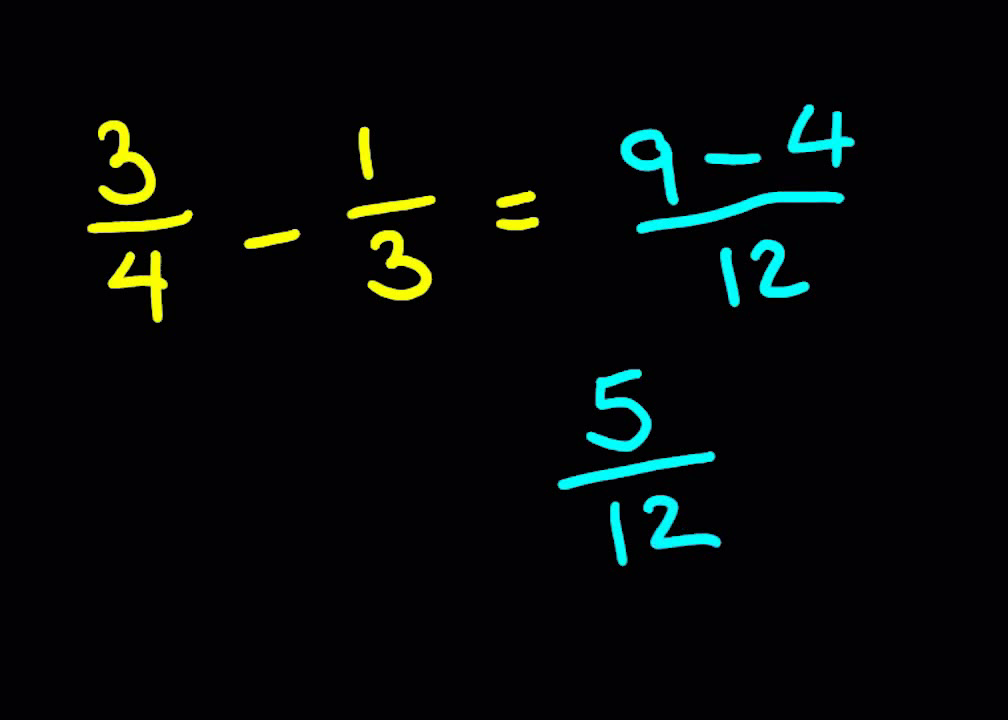 3/4 - 1/3 = (9 - 4)/12
5/12